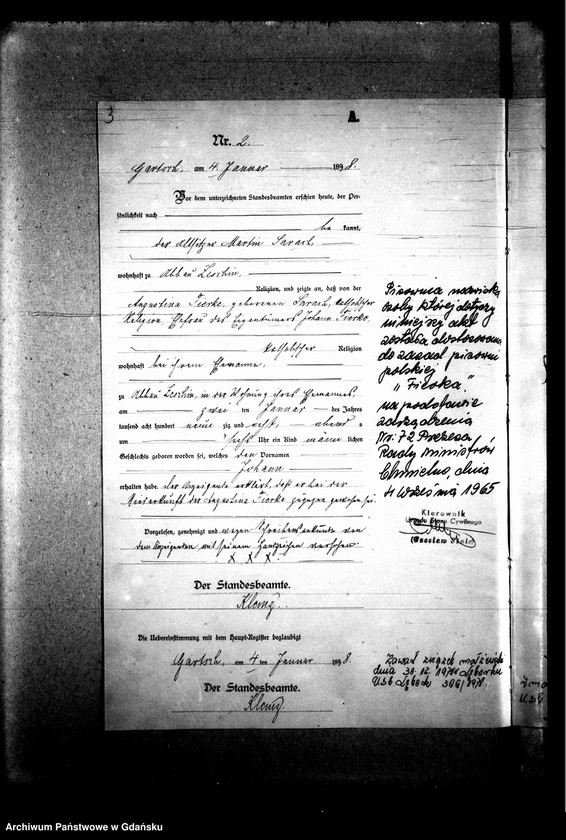 3
A.
Nr. 2.
Gartsch, am 4. Januar 1898.
Vor dem unterzeichneten Standesbeamten erschien heute, der Per-
sönlichkeit nach
be kannt,
der Altsitzer Martin
wohnhaft zu Abbau
Religion, und zeigte an, daß von der
Augustina geborenen katholischer
Religion, Ehefrau des Eigentümers Johann
katholischer Religion
wohnhaft bei ihrem Ehemanne,
zu Abbau in der Wohnung ihres Ehemannes,
am zwei ten Januar des Jahres
tausend acht hundert neun zig und acht, abends
um sechs Uhr ein Kind männ lichen
Geschlechts geboren worden sei, welches den Vornamen
Johann
erhalten habe. Der Anzeigende erklärt, daß er bei der
Niederkunft der Augustina zugegen gewesen sei.
Vorgelesen, genehmigt und wegen Schreibensunkunde von
dem Anzeigenden mit seinem Handzeichen versehen.
X X X.
Der Standesbeamte.
Die Uebereinstimmung mit dem Haupt-Register beglaubigt
Gartsch, am 4 ten Januar 1898.
Der Standesbeamte.
Pisownia nazwiska
osoby której dotyczy
niniejszy akt
została dostosowana
do zasad pisowni
polskiej
na podstawie
zarządzenia
Nr. 72 Prezesa
Rady Ministrów
Chmielno dnia
4 września 1965
Kierownik
Urzędu Stanu Cywilnego
Zawarł związek małżeński
dnia
USC
Archiwum Państwowe w Gdańsku